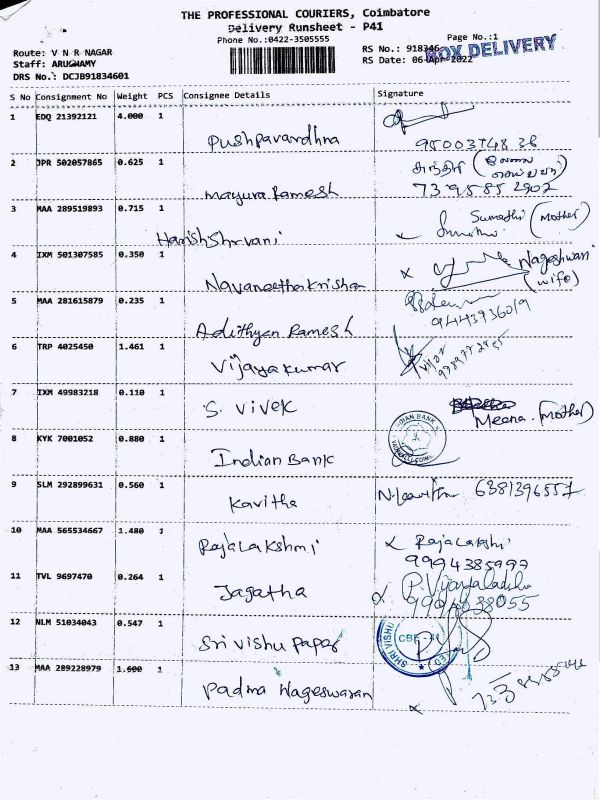 THE PROFESSIONAL COURIERS, Coimbatore
Delivery Runsheet - P41
Phone No.:0422-3505555
Page No.:1
Route: V N R NAGAR
RS No.: 918346
BOX DELIVERY
Staff: ARUCHAMY
RS Date: 06-Apr-2022
DRS No.: DCJB91834601
S No Consignment No Weight PCS Consignee Details Signature
1 EDQ 21392121 4.000 1
Pushpavardhna 9500374836
2 JPR 502057865 0.625 1
Mayura Ramesh 7395852902
3 MAA 289519893 0.715 1 Sumathi (Mother)
Harishshrvani
4 IXM 501307585 0.350 1 x Nageshwari
Navaneethakrishan (wife)
5 MAA 281615879 0.235 1
Adithyan Ramesh 9443936019
6 TRP 4025450 1.461 1
Vijayakumar
7 IXM 49983218 0.110 1
S. Vivek Meena (Mother)
INDIAN BANK
8 KYK 7001052 0.880 1
Indian Bank
9 SLM 292899631 0.560 1
Kavitha 6381396557
10 MAA 565534667 1.480 1
RajaLakshmi Rajalakshi
9994385997
11 TVL 9697470 0.264 1
Jagatha
12 NLM 51034043 0.547 1
Sri vishu Paper SHRI VISHU
CBE
13 MAA 289228979 1.600 1
Padma Nageswaran
x